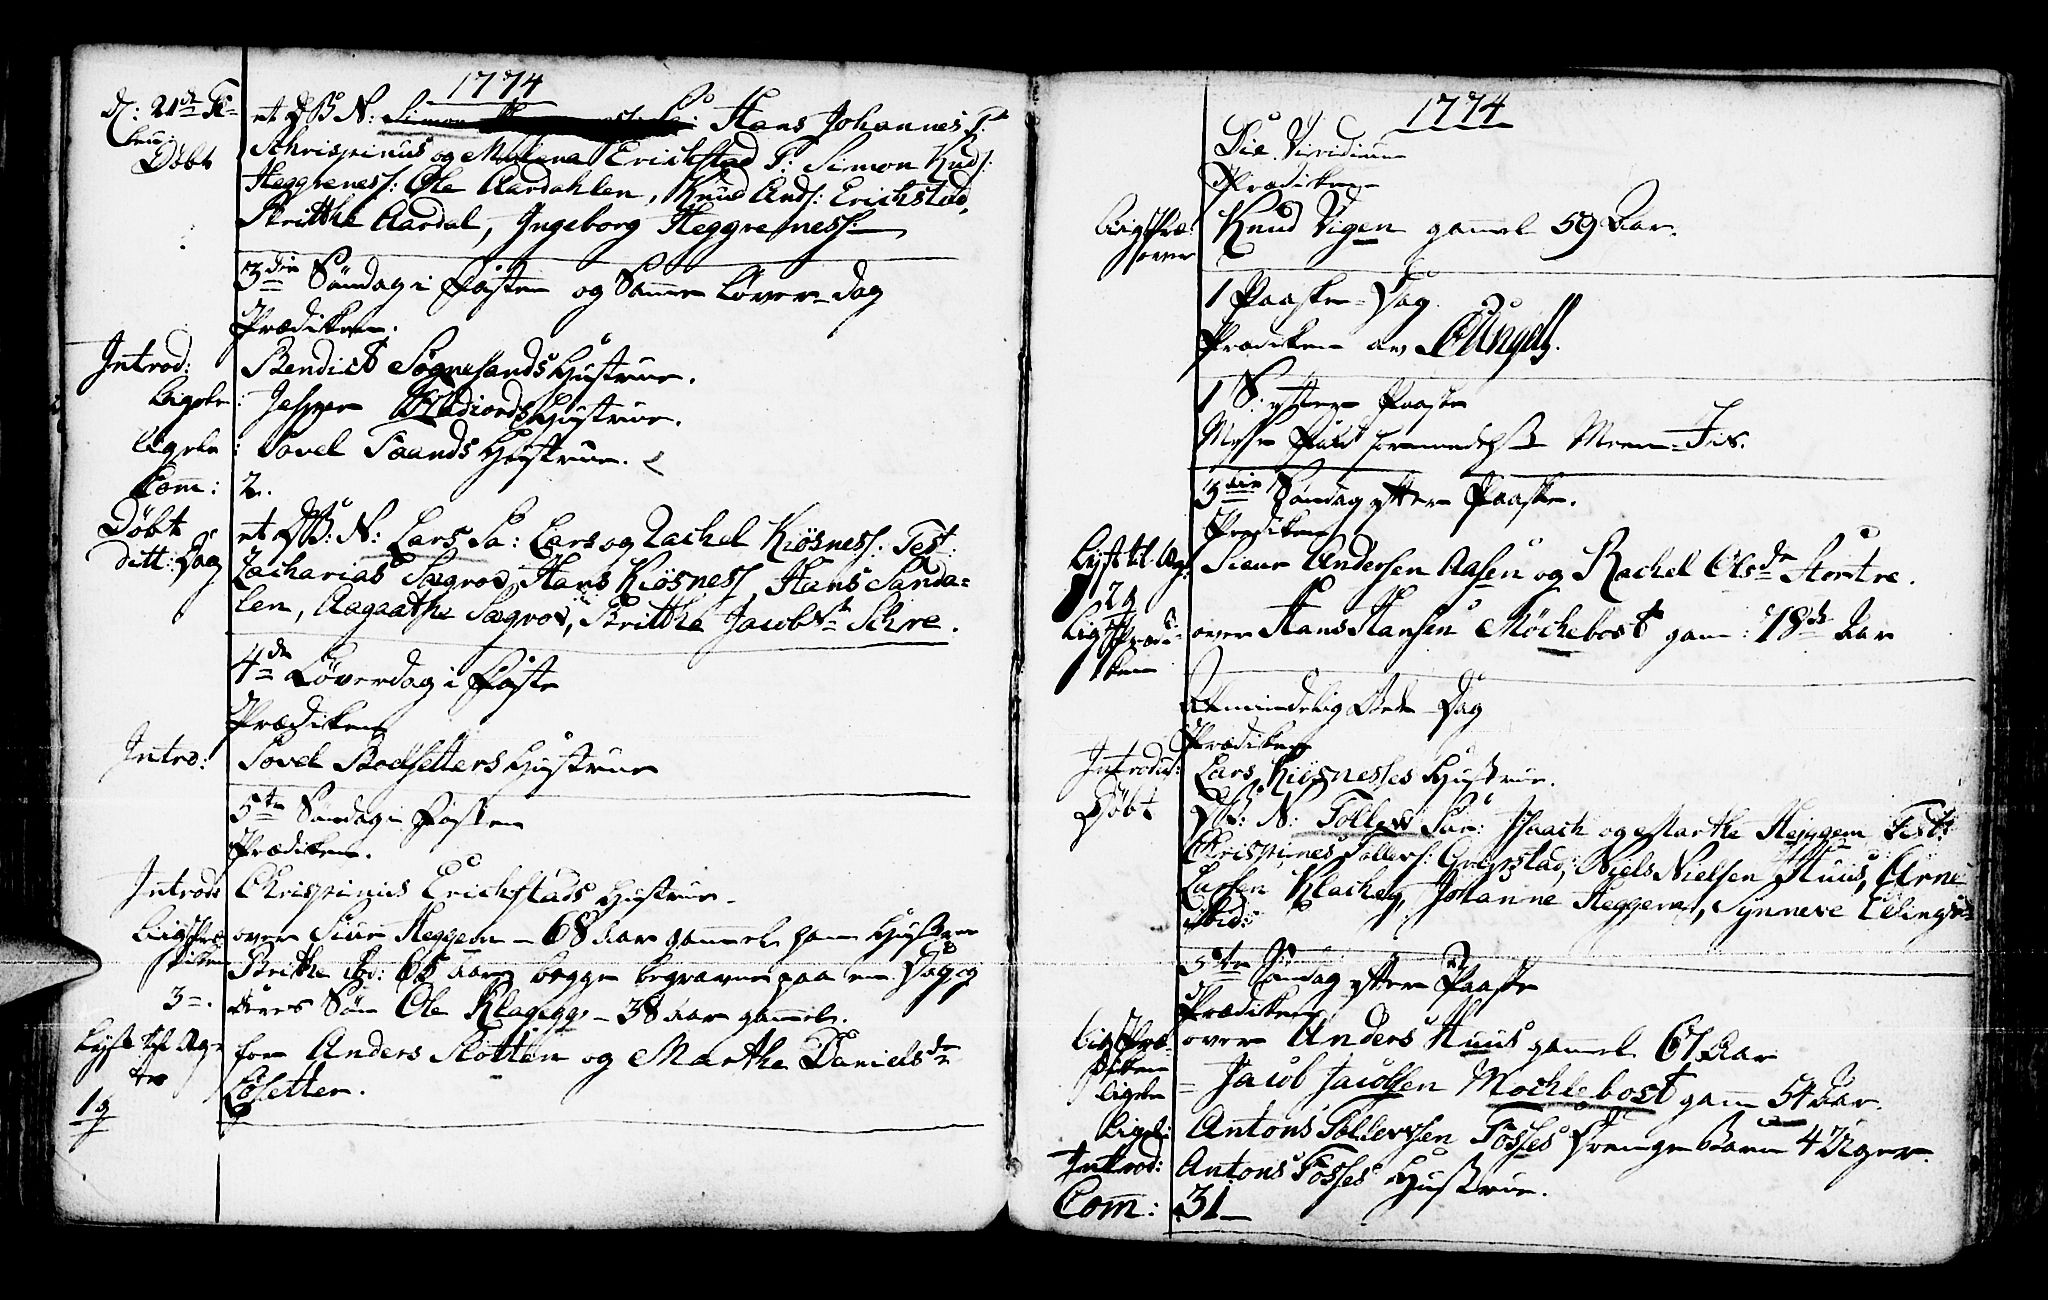 1774
d: 21de Fe-
bru:
Døbt
et DB N: Simon Hans Johannes F:
Schrispinus og Erichstad F: Simon Knuds:
Heggreness: Ole Aardahlen, Knud Ands: Erichstad,
Britthe Aardal, Ingeborg Heggreness:
3die Søndag i Fasten og Samme Løver-dag
Prædiken.
Introd: Bendict Sognesands Hustrue.
Ligele: Jesper Hustrue.
Ligele: Povel Hustrue.
Com: 2.
Døbt
ditt: Dag
et DB: N: Lars Fa: Lars og Rachel Kiøsness: Test:
Zacharias Sægrov, Hans Kiøsness, Hans Sanda-
len, Aagaathe Sægrov, Britthe Jacobs Schre.
4de Løverdag i Faste
Prædiken
Introd: Povel Boedsetters Hustrue
5te Søndag i Fasten
Prædiken.
Introd: Chrispinus Erichstads Hustrue.
Liigpræ-
diken
3=.
over Siur Heggem - 68 aar gammel hans Hustrue
Brithe 65 aar begge begravne paa een Dag og
deres Søn Ole Klagegg - 38 aar gammel.
Lyst til Ægte
19
for Anders Støtten og Marthe Danielsdr
Løsetter.
1774
Die Viridium
Prædiken
Liigpræ:
over
Knud Vigen gammel 59 Aar.
1 Paaske-Dag.
Prædiken av
1 S: efter Paaske
Messe Fald formedelst Meen-Iis.
3die Søndag efter Paaske.
Prædiken
Lyst til Ægt:
29
Siur Andersen Aasen og Rachel Olsdr Stortre.
Liigprædi-
ken
over Hans Hansen Møchlebost gam: 78de Aar
Almindelig Bede-Dag
Prædiken
Introduc: Lars Kiøsnesses Hustrue.
Døbt DB: N: Tollev For: Isaach og Marthe Heggem Test:
Chrispines Tollevs: Niels Nielsen Huus, Arne
Larsen Klacheg, Johanne Heggem, Synneve
ibid:
5te Søndag efter Paaske
Prædiken
Liigpræ-
diken
over Anders Huus gammel 67 Aar
ligele = Jacob Jacobsen Mochlebost gam 54 Aar.
Ligel: Antons Tollevsen Fosses Drenge Barn 4 Uger.
Introd: Antons Fosses Hustrue.
Com: 31